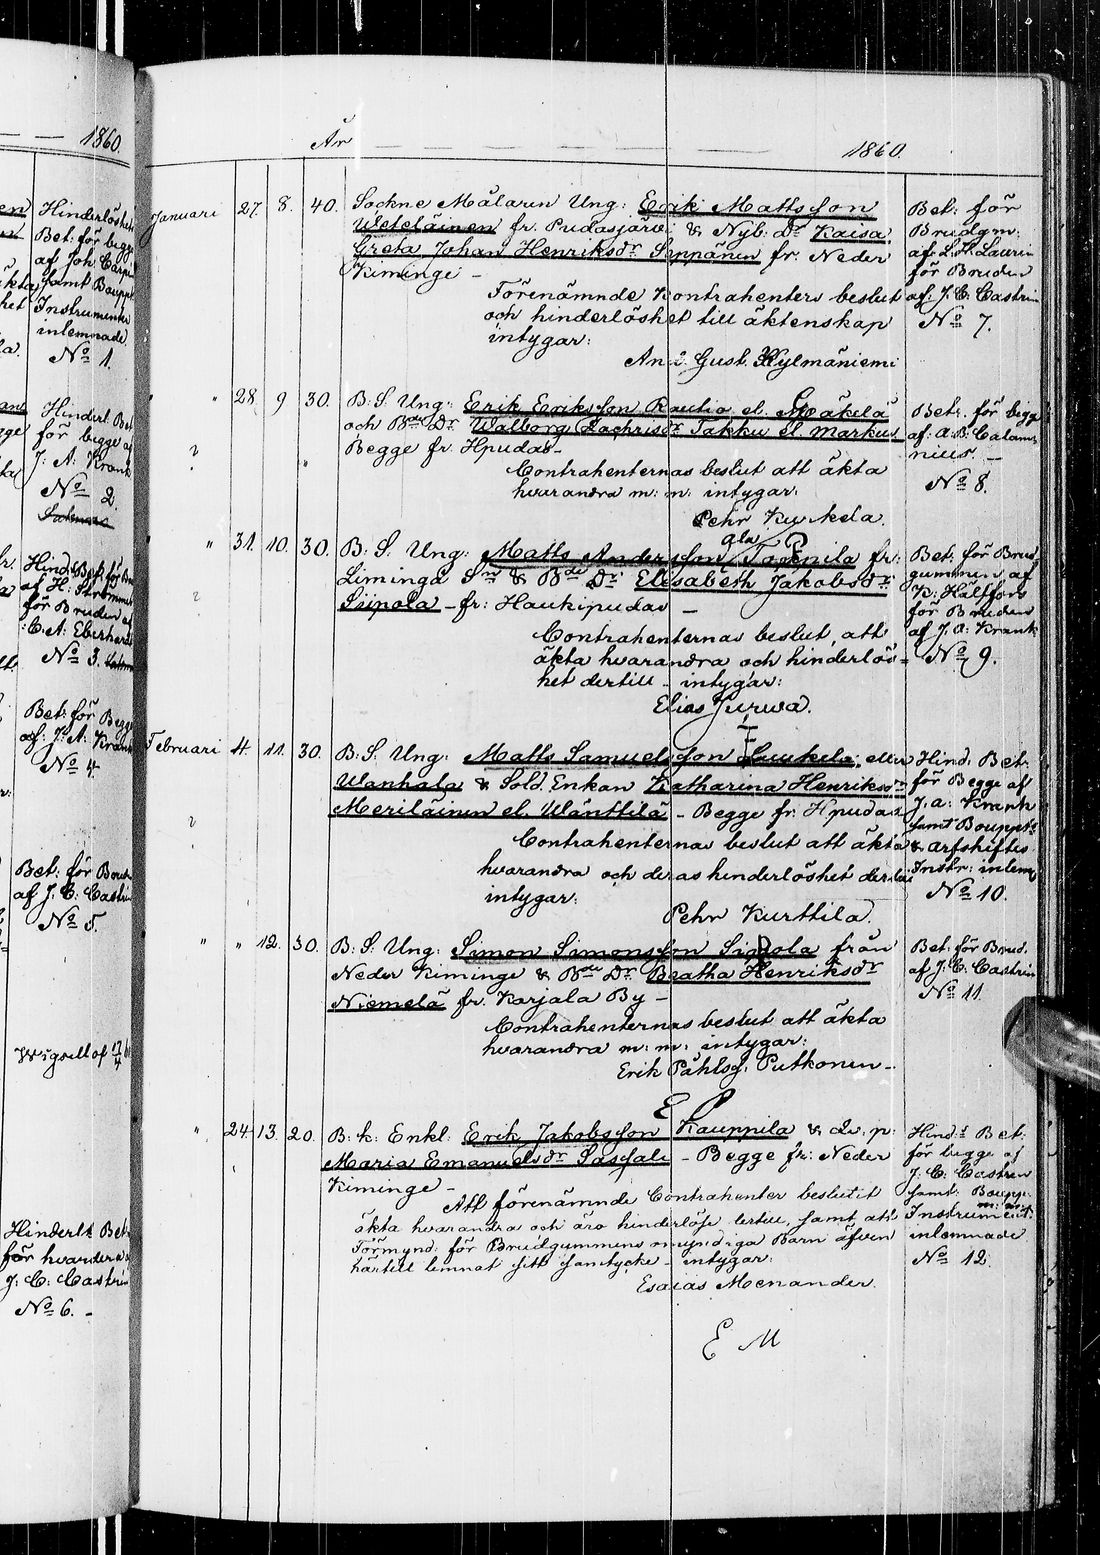 1860.
Hinderlöshet
Bet: för begge
af Joh. Carp
samt Bouppt
Instrumenter
inlemnade.
No 1.
Hinderl. Bet
för begge af
J. A. Krank
No 2.
för Bruden af
C. A. Eberhard
No 3.
Bet: för Begge
af: J: A: Krank
No 4.
Bet: för Brud
af J. C: Castrén
No 5.
Wigsell af 17/4
Hinderlt Bet:
för hvardera
J: C: Castrén
No 6. -
År 1860.
Januari 27. 8. 40. Sockne Målaren Ung: Erik Mattsson
Weteläinen fr. Pudasjärvi & Nyb: dr Kaisa
Greta Johan Henriksdr Seppänen fr. Neder
Kiminge -
Förenämnde Kontrahenters beslut
och hinderlöshet till äktenskap
intygar:
And. Gust. Kylmäniemi
Bet: för
Brudgm:
af L. H. Laurin
för Bruden
af: J. C. Castrén
No 7.
" 28. 9 30. B. S. Ung: Erik Eriksson Rautio el. Mäkelä
och Bde Dr. Walborg Zachrisdr Takku el. Markus
Begge fr. Hpudas -
Contrahenternas beslut att äkta
hvarandra m: m: intygar:
Pehr Kurkela.
Betr. för begge
af: A. B. Calam
nius. -
No 8.
" 31. 10. 30. B: S. Ung: Matts Andersson Toppila fr:
Liminga Sn & Bde Dr Elisabeth Jakobsdr
Siipola - fr: Haukipudas -
Contrahenternas beslut, att
äkta hvarandra och hinderlös=
het dertill - intygar:
Elias Jurwa.
Bet: för Brud
gummen af
K: Hällfors
för Bruden
af J. A: Krank
No 9.
Februari 4. 11. 30. B: S. Ung: Matts Samuelsson Laukela, eller
Wanhala & Sold. Enkan Katharina Henriksdr
Meriläinen el. Wänttilä - Begge fr. Hpudas
Contrahenternas beslut att äkta
hvarandra och deras hinderlöshet dertill
intygar:
Pehr Kurttila.
Hind. Bet.
för Begge af
J. A: Krank
samt Bouppt
& arfskiftes
Instr: inlemn
No 10.
" " 12. 30. B: S: Ung: Simon Simonsson Sippola från
Neder Kiminge & Bde Dr Beatha Henriksdr
Niemelä fr. Karjala By -
Contrahenternas beslut att äkta
hvarandra m: m: intygar:
Erik Påhlss. Putkonen -
E P
Bet: för Brud.
af J. C: Castrén
No 11.
" 24 13. 20. B: k: Enkl: Erik Jakobsson Kauppila & Qv: p:
Maria Emanuelsdr Sassali - Begge fr: Neder
Kiminge -
Att förenämnde Contrahenter beslutit
äkta hvarandra och äro hinderlöse dertill, samt att
Förmynd: för Brudgummens omyndiga Barn äfven
härtill lemnat sitt samtycke - intygar:
Esaias Menander.
E M
Hind:t Bet:
för begge af
J. C: Castren
samt Boupp:
Instrument
inlemnade
No 12.